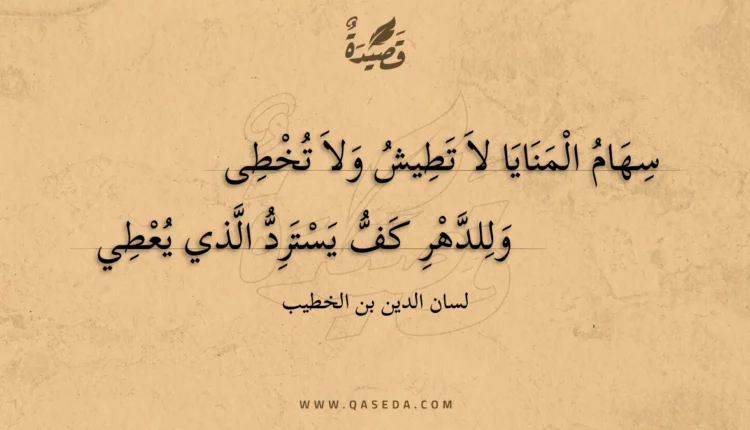 قَصِيْدَةٌ
سِهَامُ الْمَنَايَا لاَ تَطِيشُ وَلاَ تُخْطِى
وَلِلدَّهْرِ كَفُّ يَسْتَرِدُّ الَّذي يُعْطِي
لسان الدين بن الخطيب
WWW.QASEDA.COM